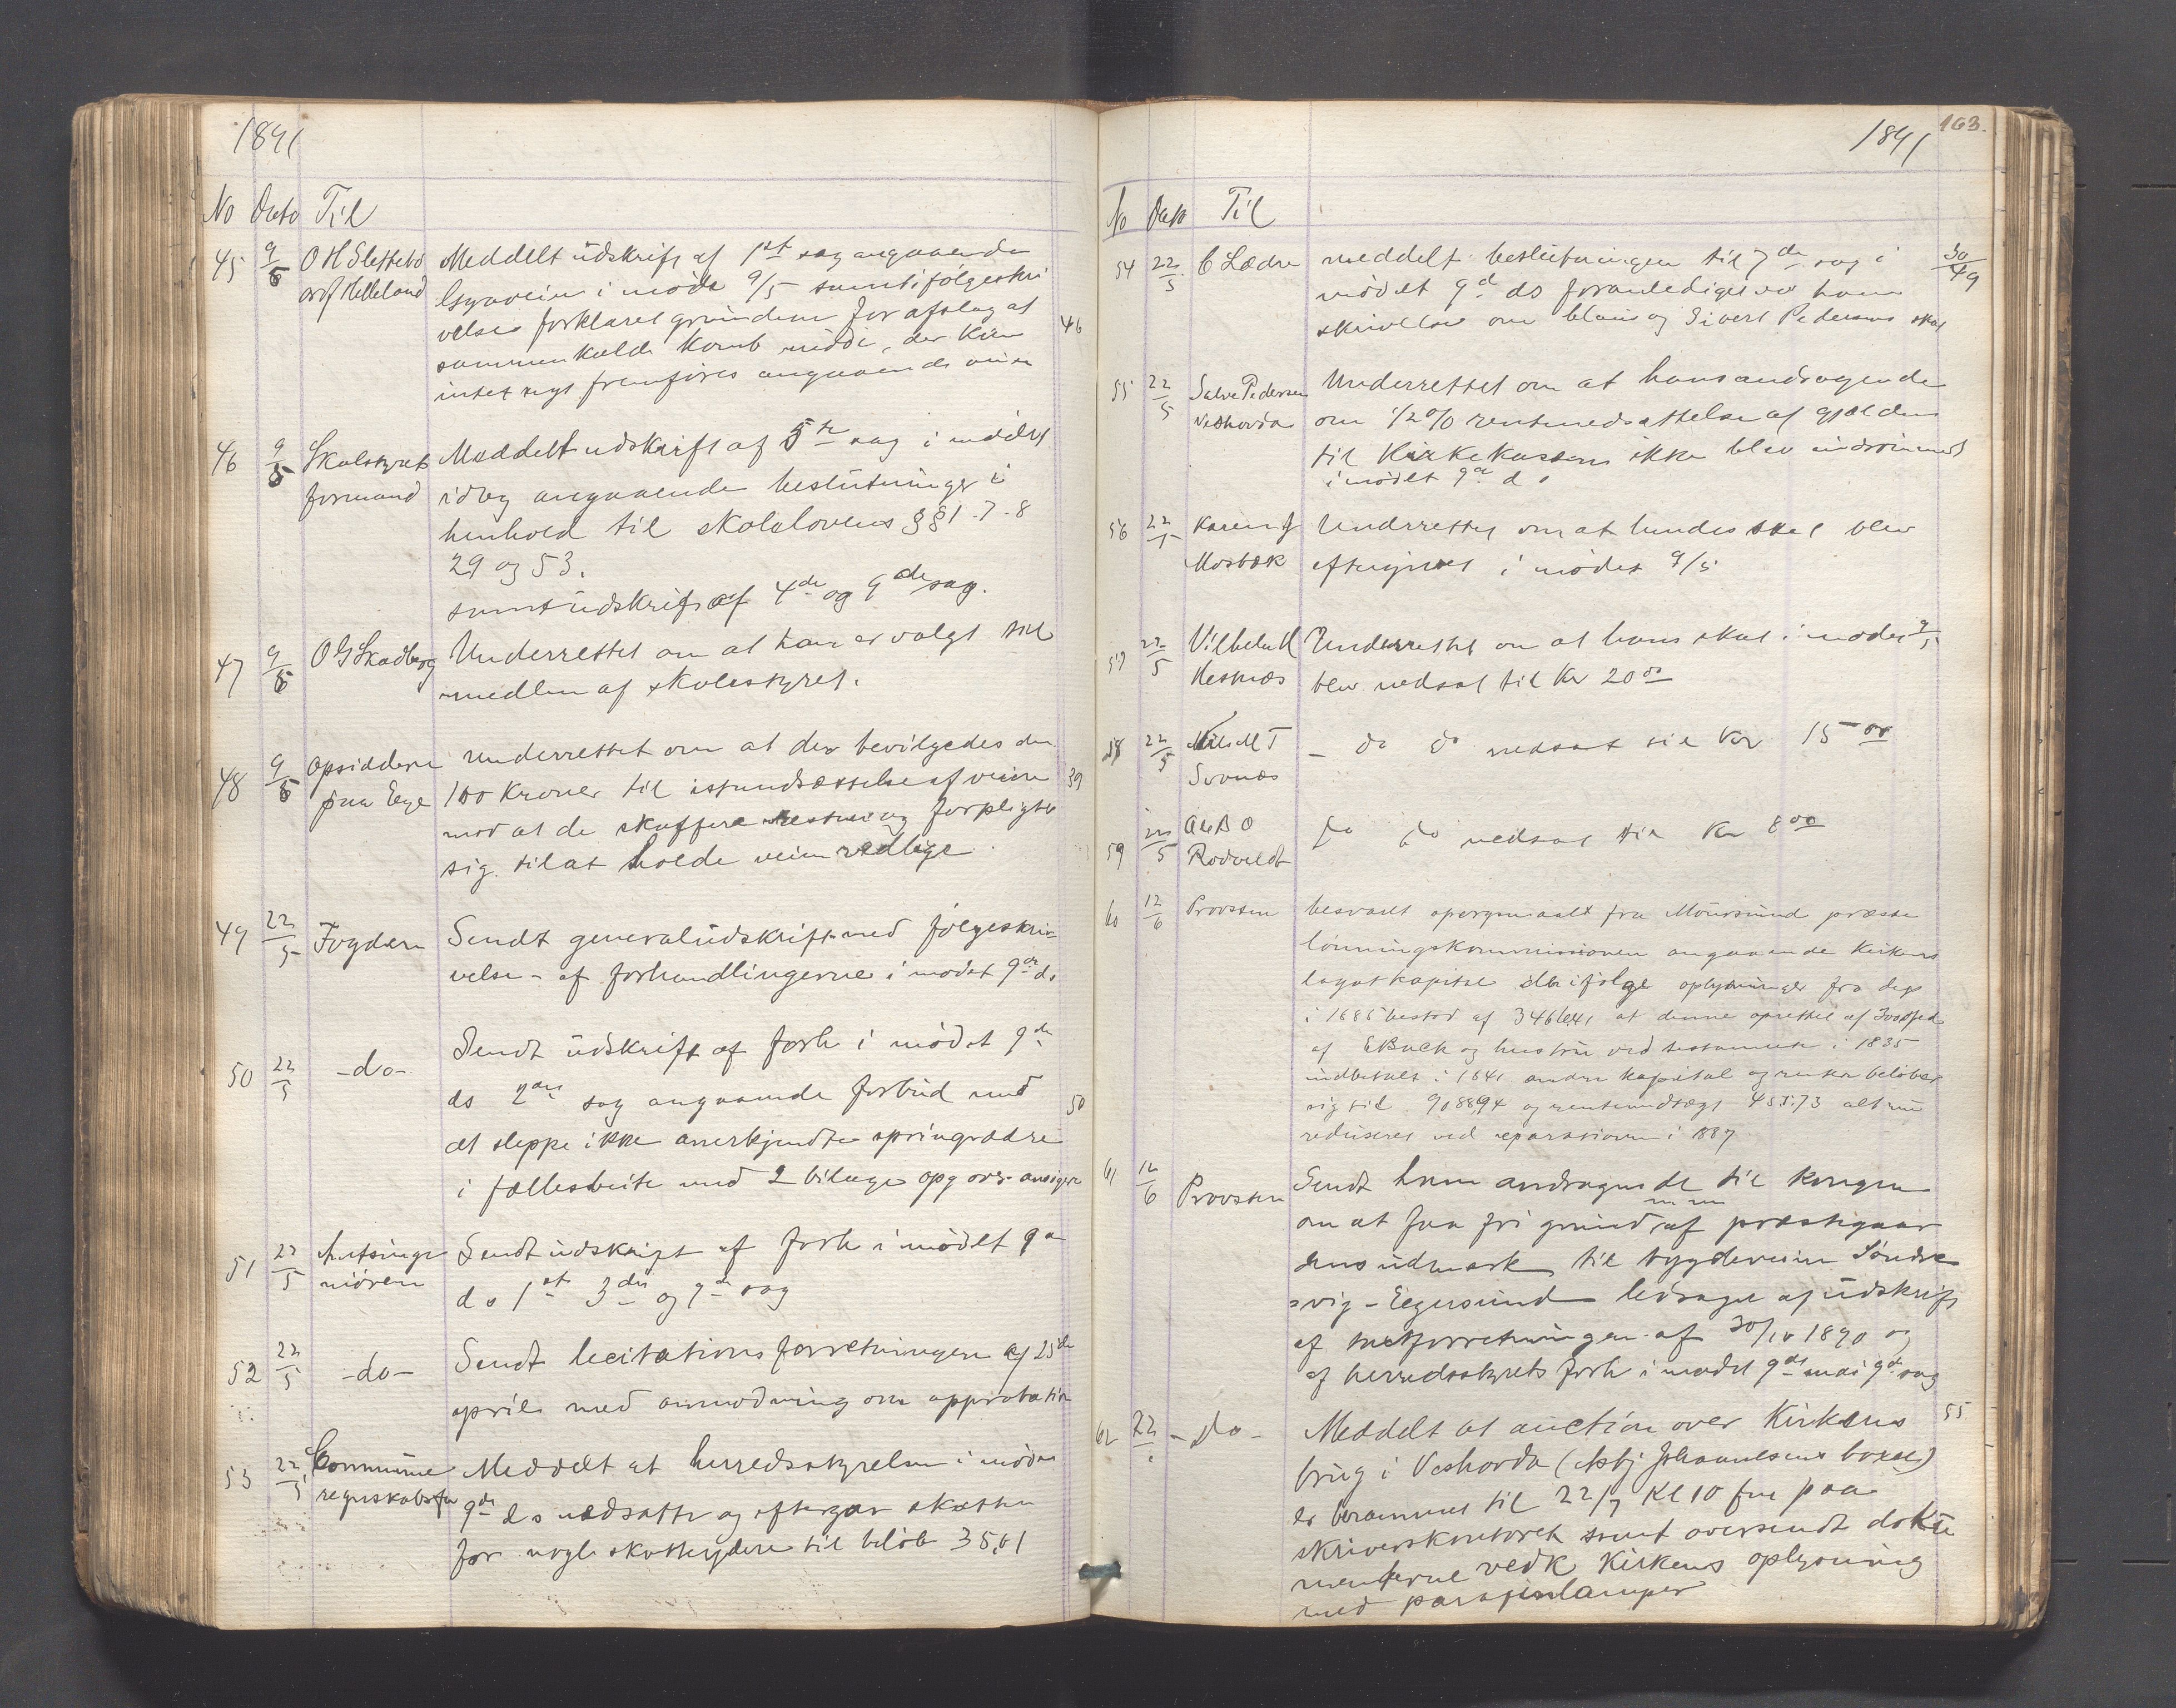 1891
No Dato Til
45 9/5 O H Slettebö Meddelt udskrift af 1st sag angaaende
og Helleland Gyaveien i möde 9/5 samt i fölgeskri
velse forklaret grundene for afslag at 46
sammenkalde komb möde, der kun
intet nyt fremföres angaaende veien
46 9/5 Skolestyrets Meddelt udskrift af 5te sag i mödet
formand idag angaaende beslutninger i
henhold til skolelovens §§ 1-7-8
29 og 53.
samt udskrift af 4de og 9de sag.
47 9/5 O G Skadberg Underrettet om at han er valgt til
medlem af skolestyret.
48 9/5 Opsidderne Underrettet om at der bevilgedes dem
paa Eege 100 Kroner til istandsættelse af veien 39
mod at de skaffere resten og forpligte
sig til at holde veien vedlige
49 22/5 Fogden Sendt generaludskrift med fölgeskri-
velse - af forhandlingerne i mödet 9de ds
50 22/5 -do- Sendt udskrift af forh i mödet 9de
ds 2den sag angaaende forbud mod 50
at sleppe ikke anerkjendte springvædre
i fællesbeite med 2 bilage opg over
51 22/5 Amtsinge Sendt udskrift af forh i mödet 9de
niören ds 1st 3die og 7de sag
52 22/5 -do- Sendt licitationsforretningen af 25de
april med anmodning om approbation
53 22/5 Commune Meddelt at herredsstyrelsen i mödet
regnskabsfø 9de ds nedsatte og eftergav skatten
for nogle skatteydere til belöb 35,61
163.
1891
No Dato Til
54 22/5 C Lædre meddelt beslutningen til 7de sag i 30/49
mödet 9de ds foranlediget ved hans
skrivelse om hans og Sivert Pedersens skat
55 22/5 Salve Pedersen Underrettet om at hans andragende
Veshovda om 1/2 % rentenedsættelse af gjælden
til Kirkekassen ikke blev indrömmet
i mödet 9de ds
56 22/5 Karen J Underrettet om at hendes skat blev
Mosbæk eftergivet i mödet 9/5
57 22/5 Vilhelm H Underrettet om at hans skat i mödet 9/5
Hesnæs blev nedsat til Kr 20 00
58 22/5 Nils M T - do do nedsat til Kr 15 00
Svanæs
59 22/5 Ole B O do do nedsat til Kr 8 00
Rodvelt
60 12/6 Provsten besvaret spörgsmaalt fra Moursund præste
lönningskommissionen angaaende Kirkens
legatkapital der ifölge oplysninger fra dep
i 1885 bestod af 3466,41 at denne oprettet af
af E Buch og hustru ved testamente i 1835
indbetalt i 1841 andre kapital og renter belöber
sig til 9088,94 og renteindtægt 455.73 alt nu
reduseret ved reparationen i 1887
61 12/6 Provsten Sendt ham andragende til kongen
om at faa fri grund af præstegaar
dens udmark til bygdeveien Söndre
svig - Eegersund ledsaget af udskrift
af forretningen af 30/10 1890 og
af herredsstyrets forh i mödet 9de mai 9de sag
62 22/ -Do- Meddelt at auction over Kirkens 55
brug i Veshovda (Asbj Johannesens böxel)
er berammet til 22/7 Kl 10 fm paa
skriverskontoret samt oversendt doku
menterne vedk Kirkens oplysning
med parafinlamper